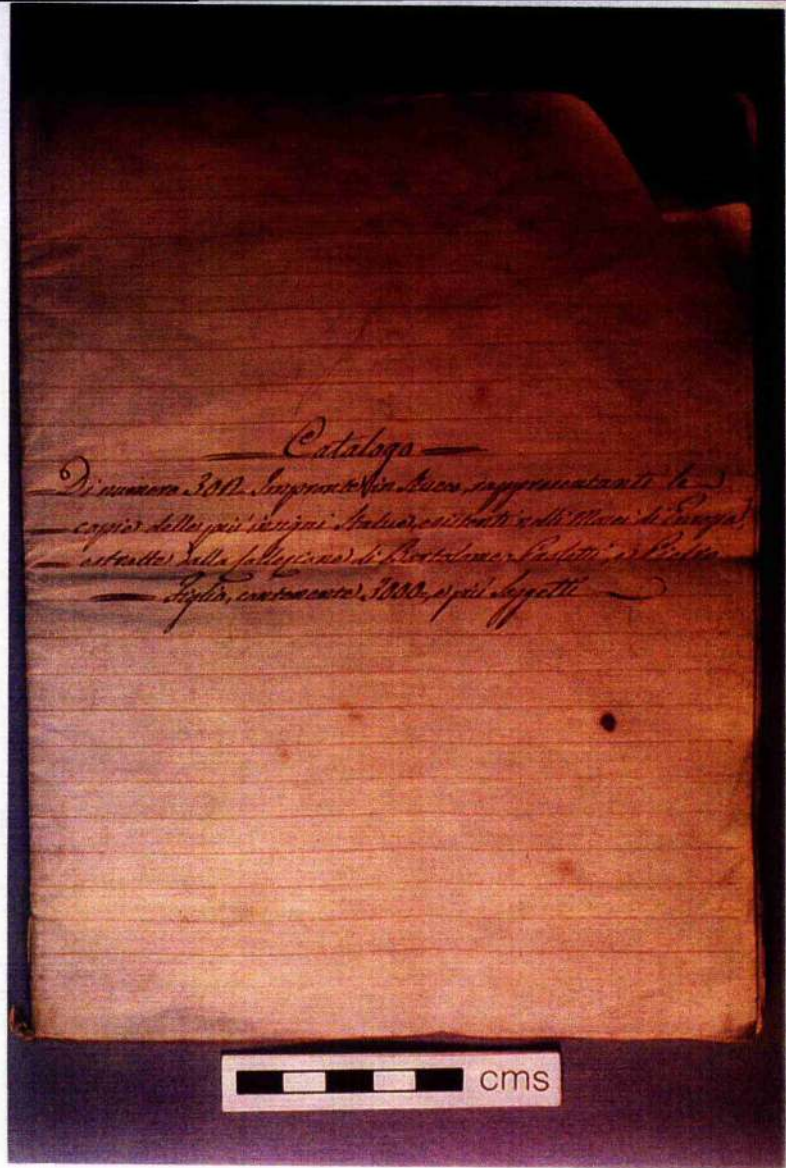 Catalogo
Di numero 300. Impronte in Stucco, rappresentanti le
copie delle più insigni Statue, esistenti nelli Musei di Europa,
estratte dalla Collezione di Bartolomeo Paoletti, e Pietro
Figlio, contenente 3000, e più Soggetti
cms